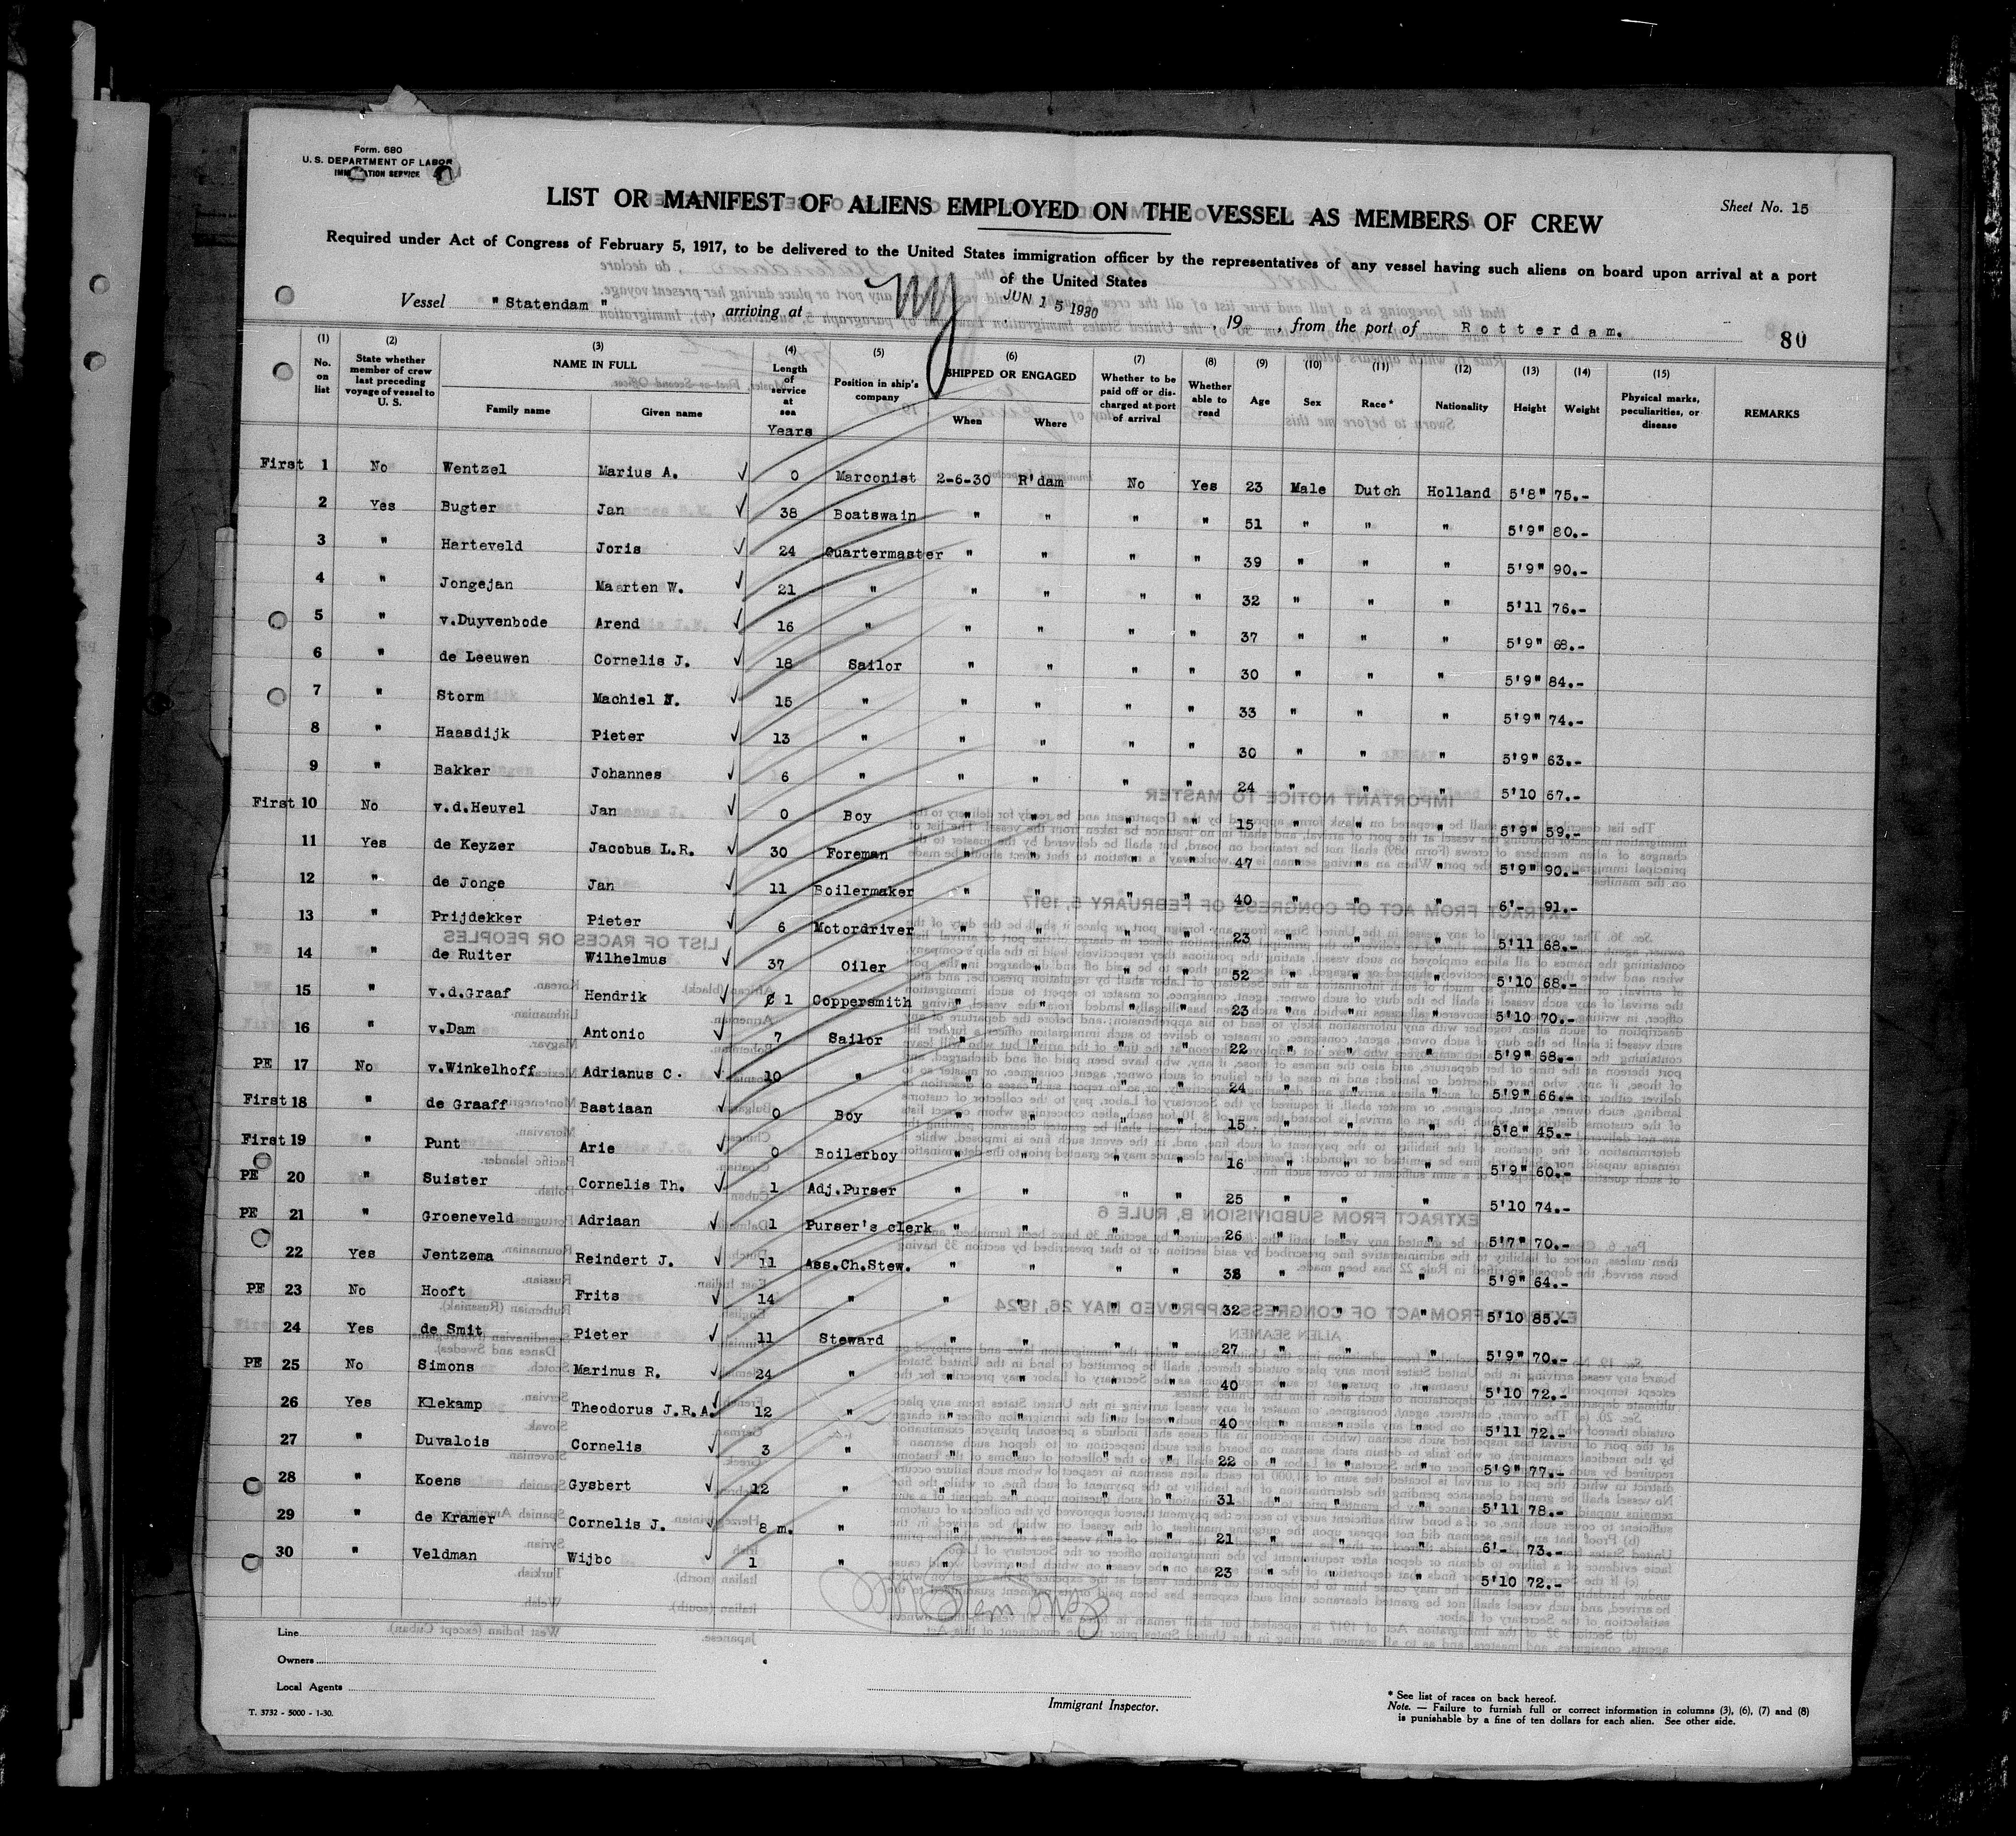 Form. 680
U. S. DEPARTMENT OF LABOR
IMMIGRATION SERVICE
LIST OR MANIFEST OF ALIENS EMPLOYED ON THE VESSEL AS MEMBERS OF CREW
Sheet No. 15
Required under Act of Congress of February 5, 1917, to be delivered to the United States immigration officer by the representatives of any vessel having such aliens on board upon arrival at a port
of the United States
Vessel "Statendam", arriving at NY JUN 15 1930, 19 , from the port of Rotterdam.
80
(1) No. on list (2) State whether member of crew last preceding voyage of vessel to U. S. (3) NAME IN FULL Family name Given name (4) Length of service at sea Years (5) Position in ship's company (6) SHIPPED OR ENGAGED When Where (7) Whether to be paid off or discharged at port of arrival (8) Whether able to read (9) Age (10) Sex (11) Race* (12) Nationality (13) Height (14) Weight (15) Physical marks, peculiarities, or disease REMARKS
First 1 No Wentzel Marius A. ✓ 0 Marconist 2-6-30 R'dam No Yes 23 Male Dutch Holland 5'8" 75.-
2 Yes Bugter Jan ✓ 38 Boatswain " " " " 51 " " " 5'9" 80.-
3 " Harteveld Joris ✓ 24 Quartermaster " " " " 39 " " " 5'9" 90.-
4 " Jongejan Maarten W. ✓ 21 " " " " " 32 " " " 5'11 76.-
5 " v.Duyvenbode Arend ✓ 16 " " " " " 37 " " " 5'9" 68.-
6 " de Leeuwen Cornelis J. ✓ 18 Sailor " " " " 30 " " " 5'9" 84.-
7 " Storm Machiel N. ✓ 15 " " " " " 33 " " " 5'9" 74.-
8 " Haasdijk Pieter ✓ 13 " " " " " 30 " " " 5'9" 63.-
9 " Bakker Johannes ✓ 6 " " " " " 24 " " " 5'10 67.-
First 10 No v.d.Heuvel Jan ✓ 0 Boy " " " " 15 " " " 5'9" 59.-
11 Yes de Keyzer Jacobus L.R. ✓ 30 Foreman " " " " 47 " " " 5'9" 90.-
12 " de Jonge Jan ✓ 11 Boilermaker " " " " 40 " " " 6'- 91.-
13 " Prijdekker Pieter ✓ 6 Motordriver " " " " 23 " " " 5'11 68.-
14 " de Ruiter Wilhelmus ✓ 37 Oiler " " " " 52 " " " 5'10 68.-
15 " v.d.Graaf Hendrik ✓ 1 Coppersmith " " " " 23 " " " 5'10 70.-
16 " v.Dam Antonio ✓ 7 Sailor " " " " 22 " " " 5'9" 68.-
PE 17 No v.Winkelhoff Adrianus C. ✓ 10 " " " " " 24 " " " 5'9" 66.-
First 18 " de Graaff Bastiaan ✓ 0 Boy " " " " 15 " " " 5'8" 45.-
First 19 " Punt Arie ✓ 0 Boilerboy " " " " 16 " " " 5'9" 60.-
PE 20 " Suister Cornelis Th. ✓ 1 Adj.Purser " " " " 25 " " " 5'10 74.-
PE 21 " Groeneveld Adriaan ✓ 1 Purser's clerk " " " " 26 " " " 5'7" 70.-
22 Yes Jentzema Reindert J. ✓ 11 Ass.Ch.Stew. " " " " " " " 5'9" 64.-
PE 23 No Hooft Frits ✓ 14 " " " " " 32 " " " 5'10 85.-
24 Yes de Smit Pieter ✓ 11 Steward " " " " 27 " " " 5'9" 70.-
PE 25 No Simons Marinus R. ✓ 24 " " " " " 40 " " " 5'10 72.-
26 Yes Klekamp Theodorus J.R.A. ✓ 12 " " " " " 40 " " " 5'11 72.-
27 " Duvalois Cornelis ✓ 3 " " " " " 22 " " " 5'9" 77.-
28 " Koens Gysbert ✓ 12 " " " " " 31 " " " 5'11 78.-
29 " de Kramer Cornelis J. ✓ 8 m. " " " " " 21 " " " 6'- 73.-
30 " Veldman Wijbo ✓ 1 " " " " " 23 " " " 5'10 72.-
Line
Owners
Local Agents
Immigrant Inspector.
T. 3732 - 5000 - 1-30.
* See list of races on back hereof.
Note. — Failure to furnish full or correct information in columns (3), (6), (7) and (8)
is punishable by a fine of ten dollars for each alien. See other side.